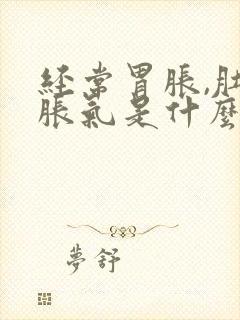 经常胃脹,肚
脹氣是什麼
夢舒